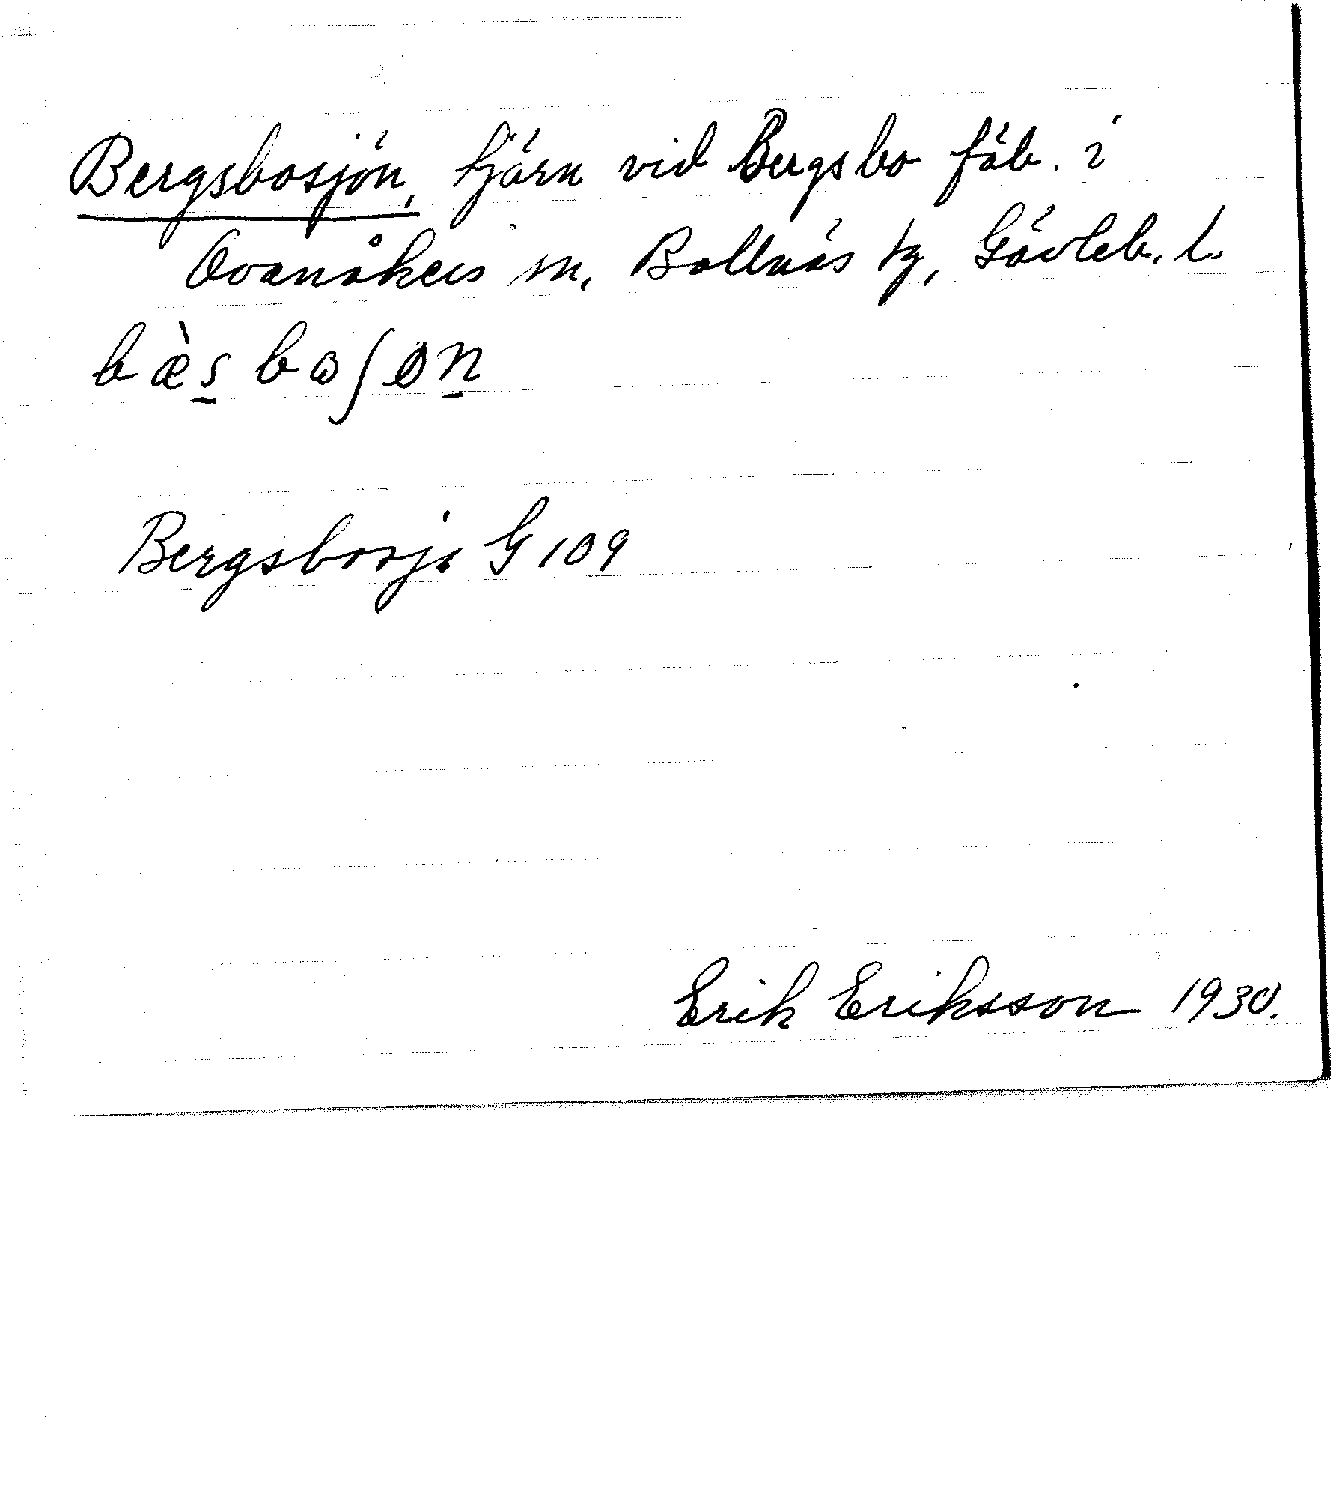 Bergsbosjön, tjärn vid Bergsbo fäb. i
Ovanåkers sn, Bollnäs tg, Gävleb. l.
bæ̀s̱ bωʃøṉ
Bergsbosjö G 109
Erik Eriksson 1930.